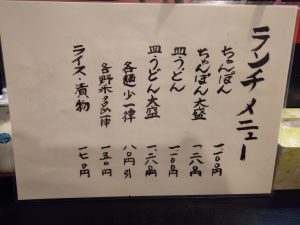 ランチメニュー
ちゃんぽん 一一00円
ちゃんぽん大盛 一二八0円
皿うどん 一一00円
皿うどん大盛 一二八0円
各麺少一律 八0円引
各野菜多め一律 一五0円
ライス・漬物 一七0円